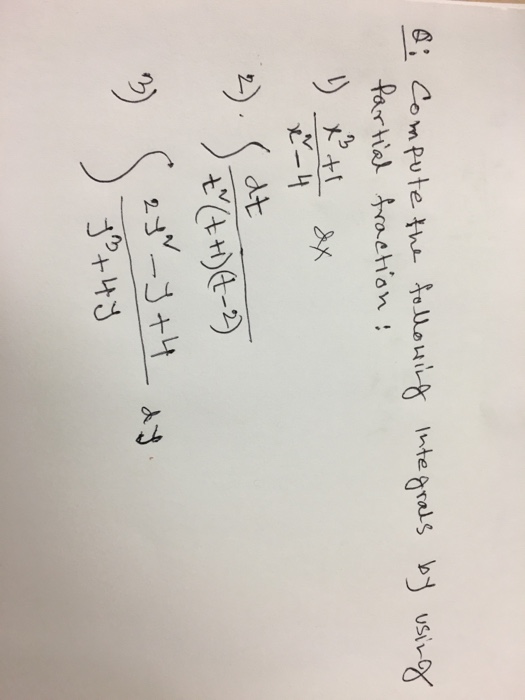 Q: Compute the following integrals by using
Partial fraction:
1) (x³+1)/(x²-4) dx
2). ∫ dt/(t²(t+1)(t-2))
3) ∫ (2y²-y+4)/(y³+4y) dy.